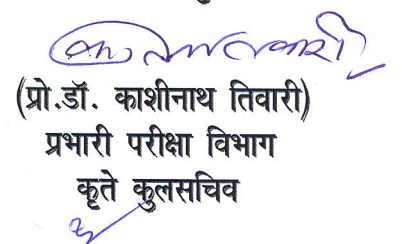 (प्रो.डॉ. काशीनाथ तिवारी)
प्रभारी परीक्षा विभाग
कृते कुलसचिव